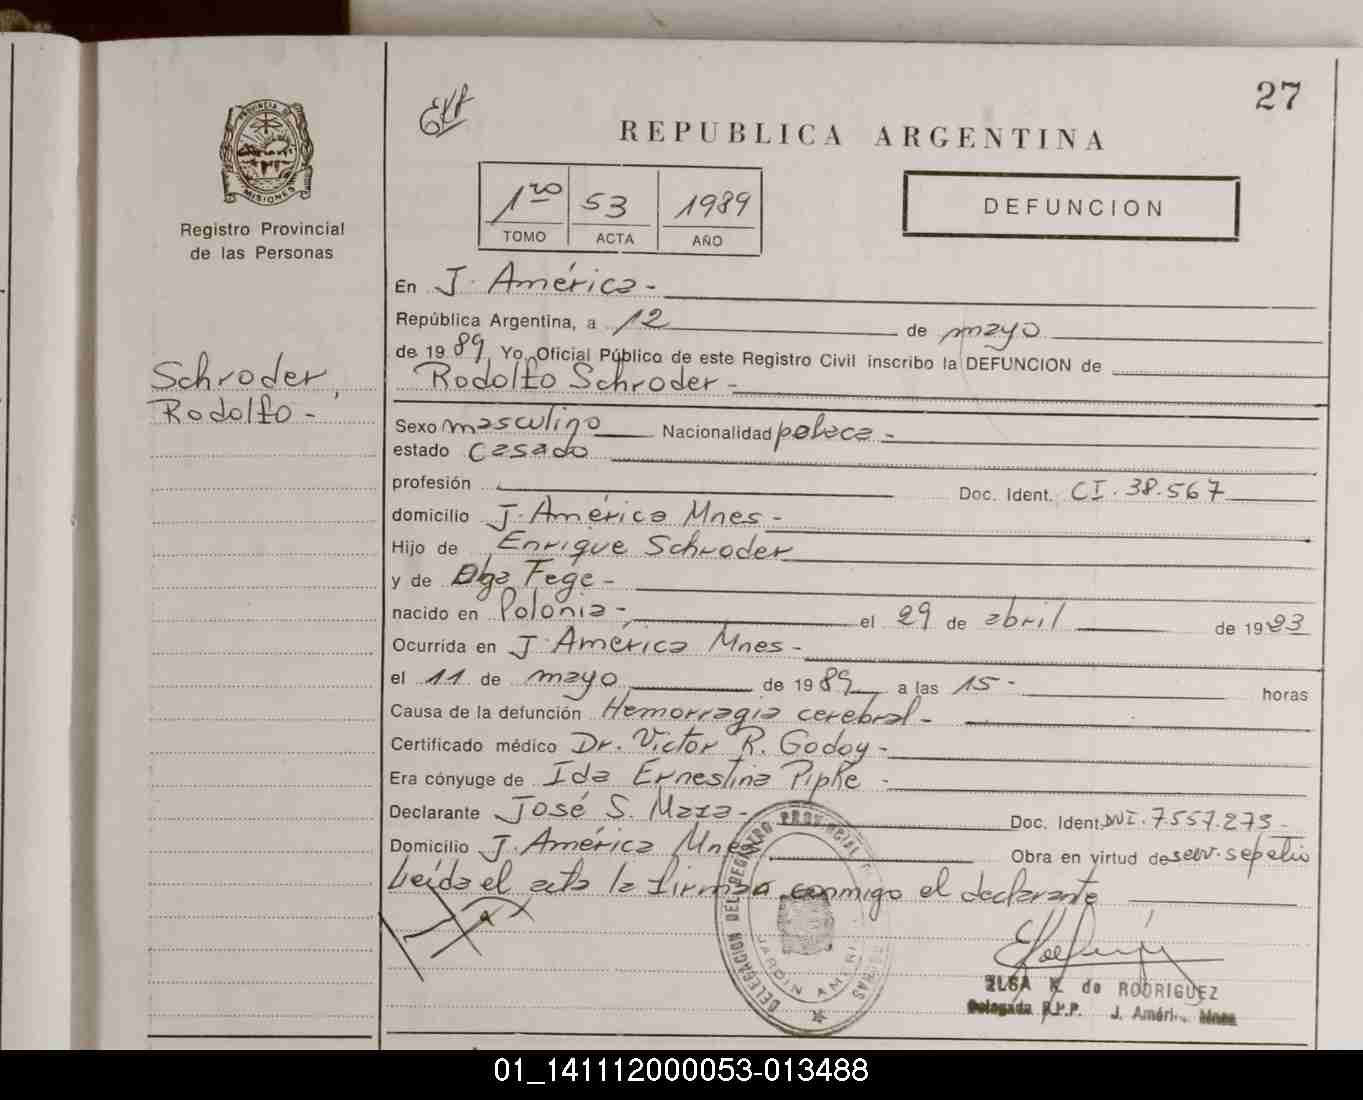 27
REPUBLICA ARGENTINA
PROVINCIA DE
MISIONES
Registro Provincial
de las Personas
1ro 53 1989
TOMO ACTA AÑO
DEFUNCION
En J. América -
República Argentina, a 12 de mayo
de 1989, Yo, Oficial Público de este Registro Civil inscribo la DEFUNCION de
Schroder,
Rodolfo -
Rodolfo Schroder -
Sexo masculino Nacionalidad polaca -
estado casado
profesión Doc. Ident. CI. 38.567
domicilio J. América Mnes -
Hijo de Enrique Schroder
y de Olga Fege -
nacido en Polonia - el 29 de abril de 1923
Ocurrida en J. América Mnes -
el 11 de mayo de 1989 a las 15 - horas
Causa de la defunción Hemorragia cerebral -
Certificado médico Dr. Victor R. Godoy -
Era cónyuge de Ida Ernestina Pipke -
Declarante José S. Maza - Doc. Ident. DNI. 7.557.273 -
Domicilio J. América Mnes Obra en virtud de serv. sepelio
Leída el acta la firman conmigo el declarante
DELEGACION DEL REGISTRO PROVINCIAL
JARDIN AMERI
ELSA K. de RODRIGUEZ
Delegada R.P.P. J. Améri. Mnes
01_141112000053-013488